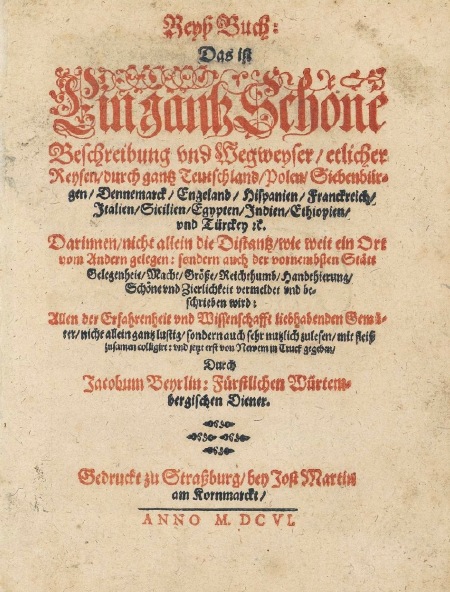 Reyß Buch:
Das ist
Ein gantz Schöne
Beschreibung vnd Wegweyser/ etlicher
Reysen/ durch gantz Teutschland/ Polen/ Siebenbür-
gen/ Dennemarck/ Engeland/ Hispanien/ Franckreich/
Italien/ Sicilien/ Egypten/ Indien/ Ethiopien/
vnd Türckey ꝛc.
Darinnen/ nicht allein die Distantz/ wie weit ein Ort
vom Andern gelegen: sondern auch der vornembsten Stätt
Gelegenheit/ Macht/ Größe/ Reichthumb/ Handthierung/
Schöne vnd Zierlichkeit vermeldet vnd be-
schrieben wird:
Allen der Erfahrenheit vnd Wissenschafft liebhabenden Gemü-
ter/ nicht allein gantz lustig/ sondern auch sehr nutzlich zulesen/ mit fleiß
zusamen colligirt: vnd jetzt erst von Newem in Truck gegeben/
Durch
Jacobum Beyrlin: Fürstlichen Würtem-
bergischen Diener.
Gedruckt zu Straßburg/ bey Jost Martin
am Kornmarckt/
ANNO M. DCVI.